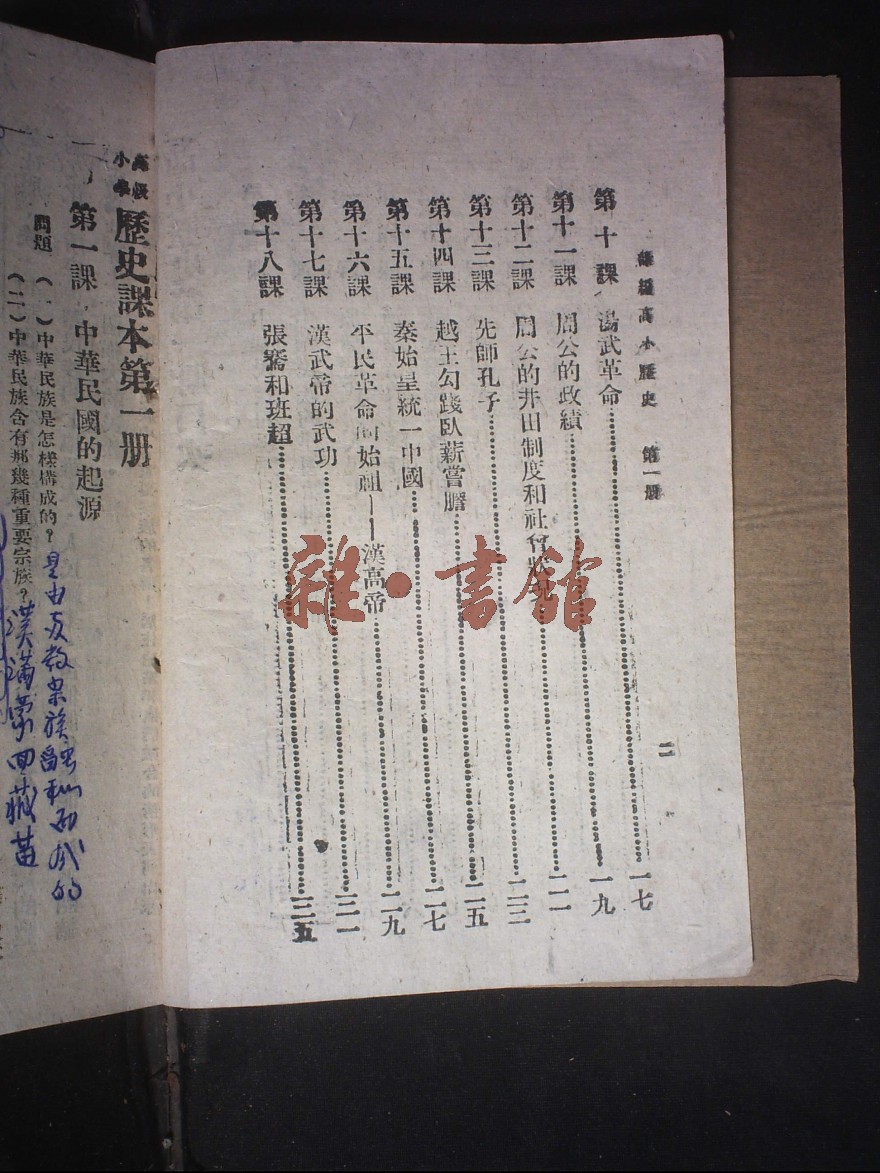 高小歷史 第一册
第十課 湯武革命 一七
第十一課 周公的政績 一九
第十二課 周公的井田制度和社會 二一
第十三課 先師孔子 二三
第十四課 越王勾踐臥薪嘗膽 二五
第十五課 秦始皇統一中國 二七
第十六課 平民革命的始祖——漢高帝 二九
第十七課 漢武帝的武功 三一
第十八課 張騫和班超 三五
二
雜·書館
高級小學 歷史課本第一册
第一課 中華民國的起源
問題 (一)中華民族是怎樣構成的? 是由 宗族融 而成的
(二)中華民族含有那幾種重要宗族? 漢滿蒙回藏苗